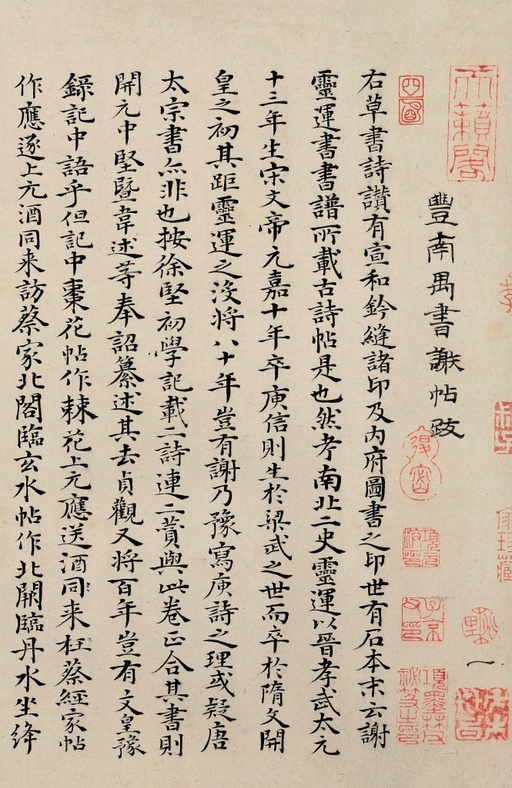 豐南禺書謝帖跋
右草書詩讚有宣和鈐縫諸印及內府圖書之印世有石本末云謝
靈運書書譜所載古詩帖是也然考南北二史靈運以晉孝武太元
十三年生宋文帝元嘉十年卒庾信則生於梁武之世而卒於隋文開
皇之初其距靈運之沒將八十年豈有謝乃豫寫庾詩之理或疑唐
太宗書亦非也按徐堅初學記載二詩連二贊與此卷正合其書則
開元中堅暨韋述等奉詔纂述其去貞觀又將百年豈有文皇豫
錄記中語乎但記中棗花帖作棘花上元應送酒同來枉蔡經家帖
作應逐上元酒同來訪蔡家北閣臨玄水帖作北闕臨丹水坐絳
天籟閣